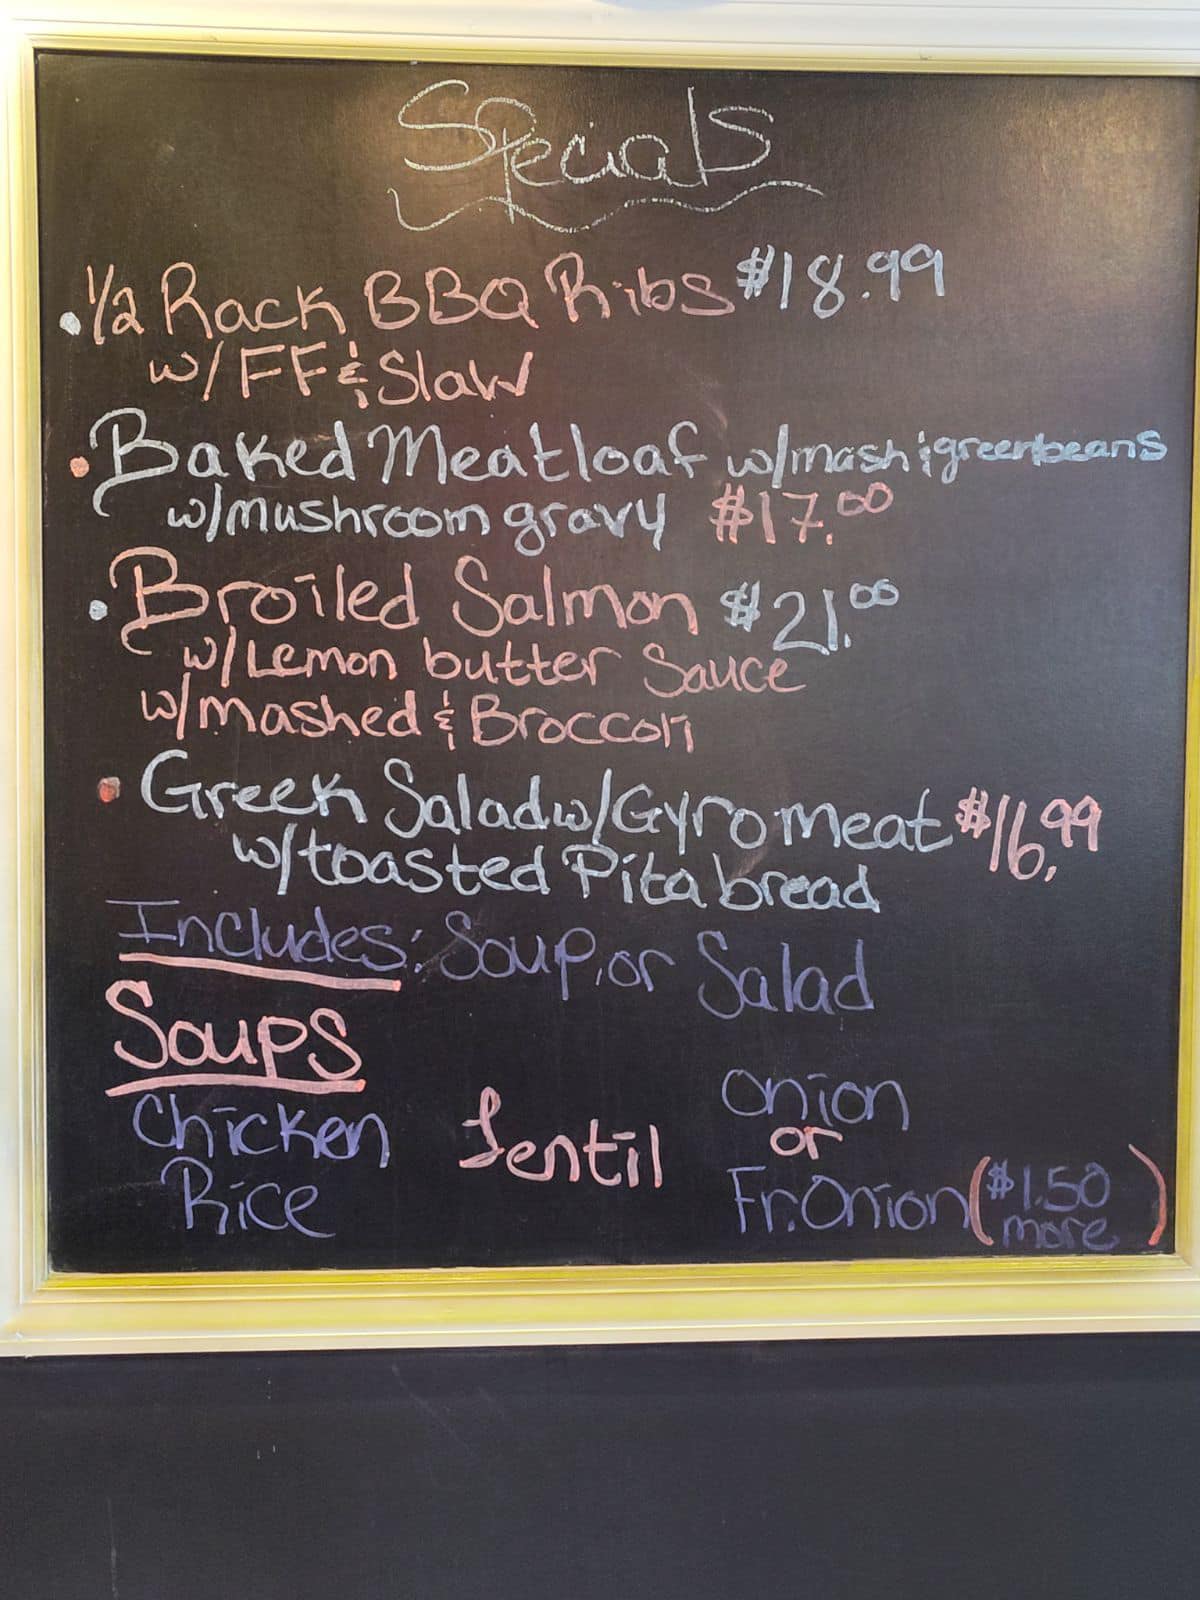 Specials
• 1/2 Rack BBQ Ribs $18.99
w/ FF & Slaw
• Baked Meatloaf w/mash & greenbeans
w/mushroom gravy $17.00
• Broiled Salmon $21.00
w/ Lemon butter Sauce
w/mashed & Broccoli
• Greek Salad w/ Gyro meat $16.99
w/toasted Pita bread
Includes: Soup, or Salad
Soups
Chicken Rice
Lentil
Onion
or
Fr. Onion ($1.50 more)